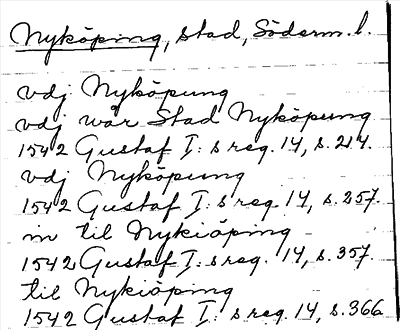 Nyköping, stad, Söderm. l.
vdj Nyköpung
vdj wår Stad Nyköpung
1542 Gustaf I:s reg. 14, s. 214.
vdj Nyköpung
1542 Gustaf I:s reg. 14, s. 257.
in til Nykiöping
1542 Gustaf I:s reg. 14, s. 357.
till Nykiöping
1542 Gustaf I:s reg. 14, s. 366